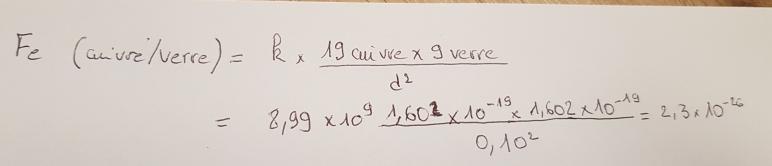 Fe (cuivre/verre) = k × 19 cuivre × 9 verre / d²
= 8,99 × 10⁹ 1,602 × 10⁻¹⁹ × 1,602 × 10⁻¹⁹ / 0,10² = 2,3 × 10⁻²⁶